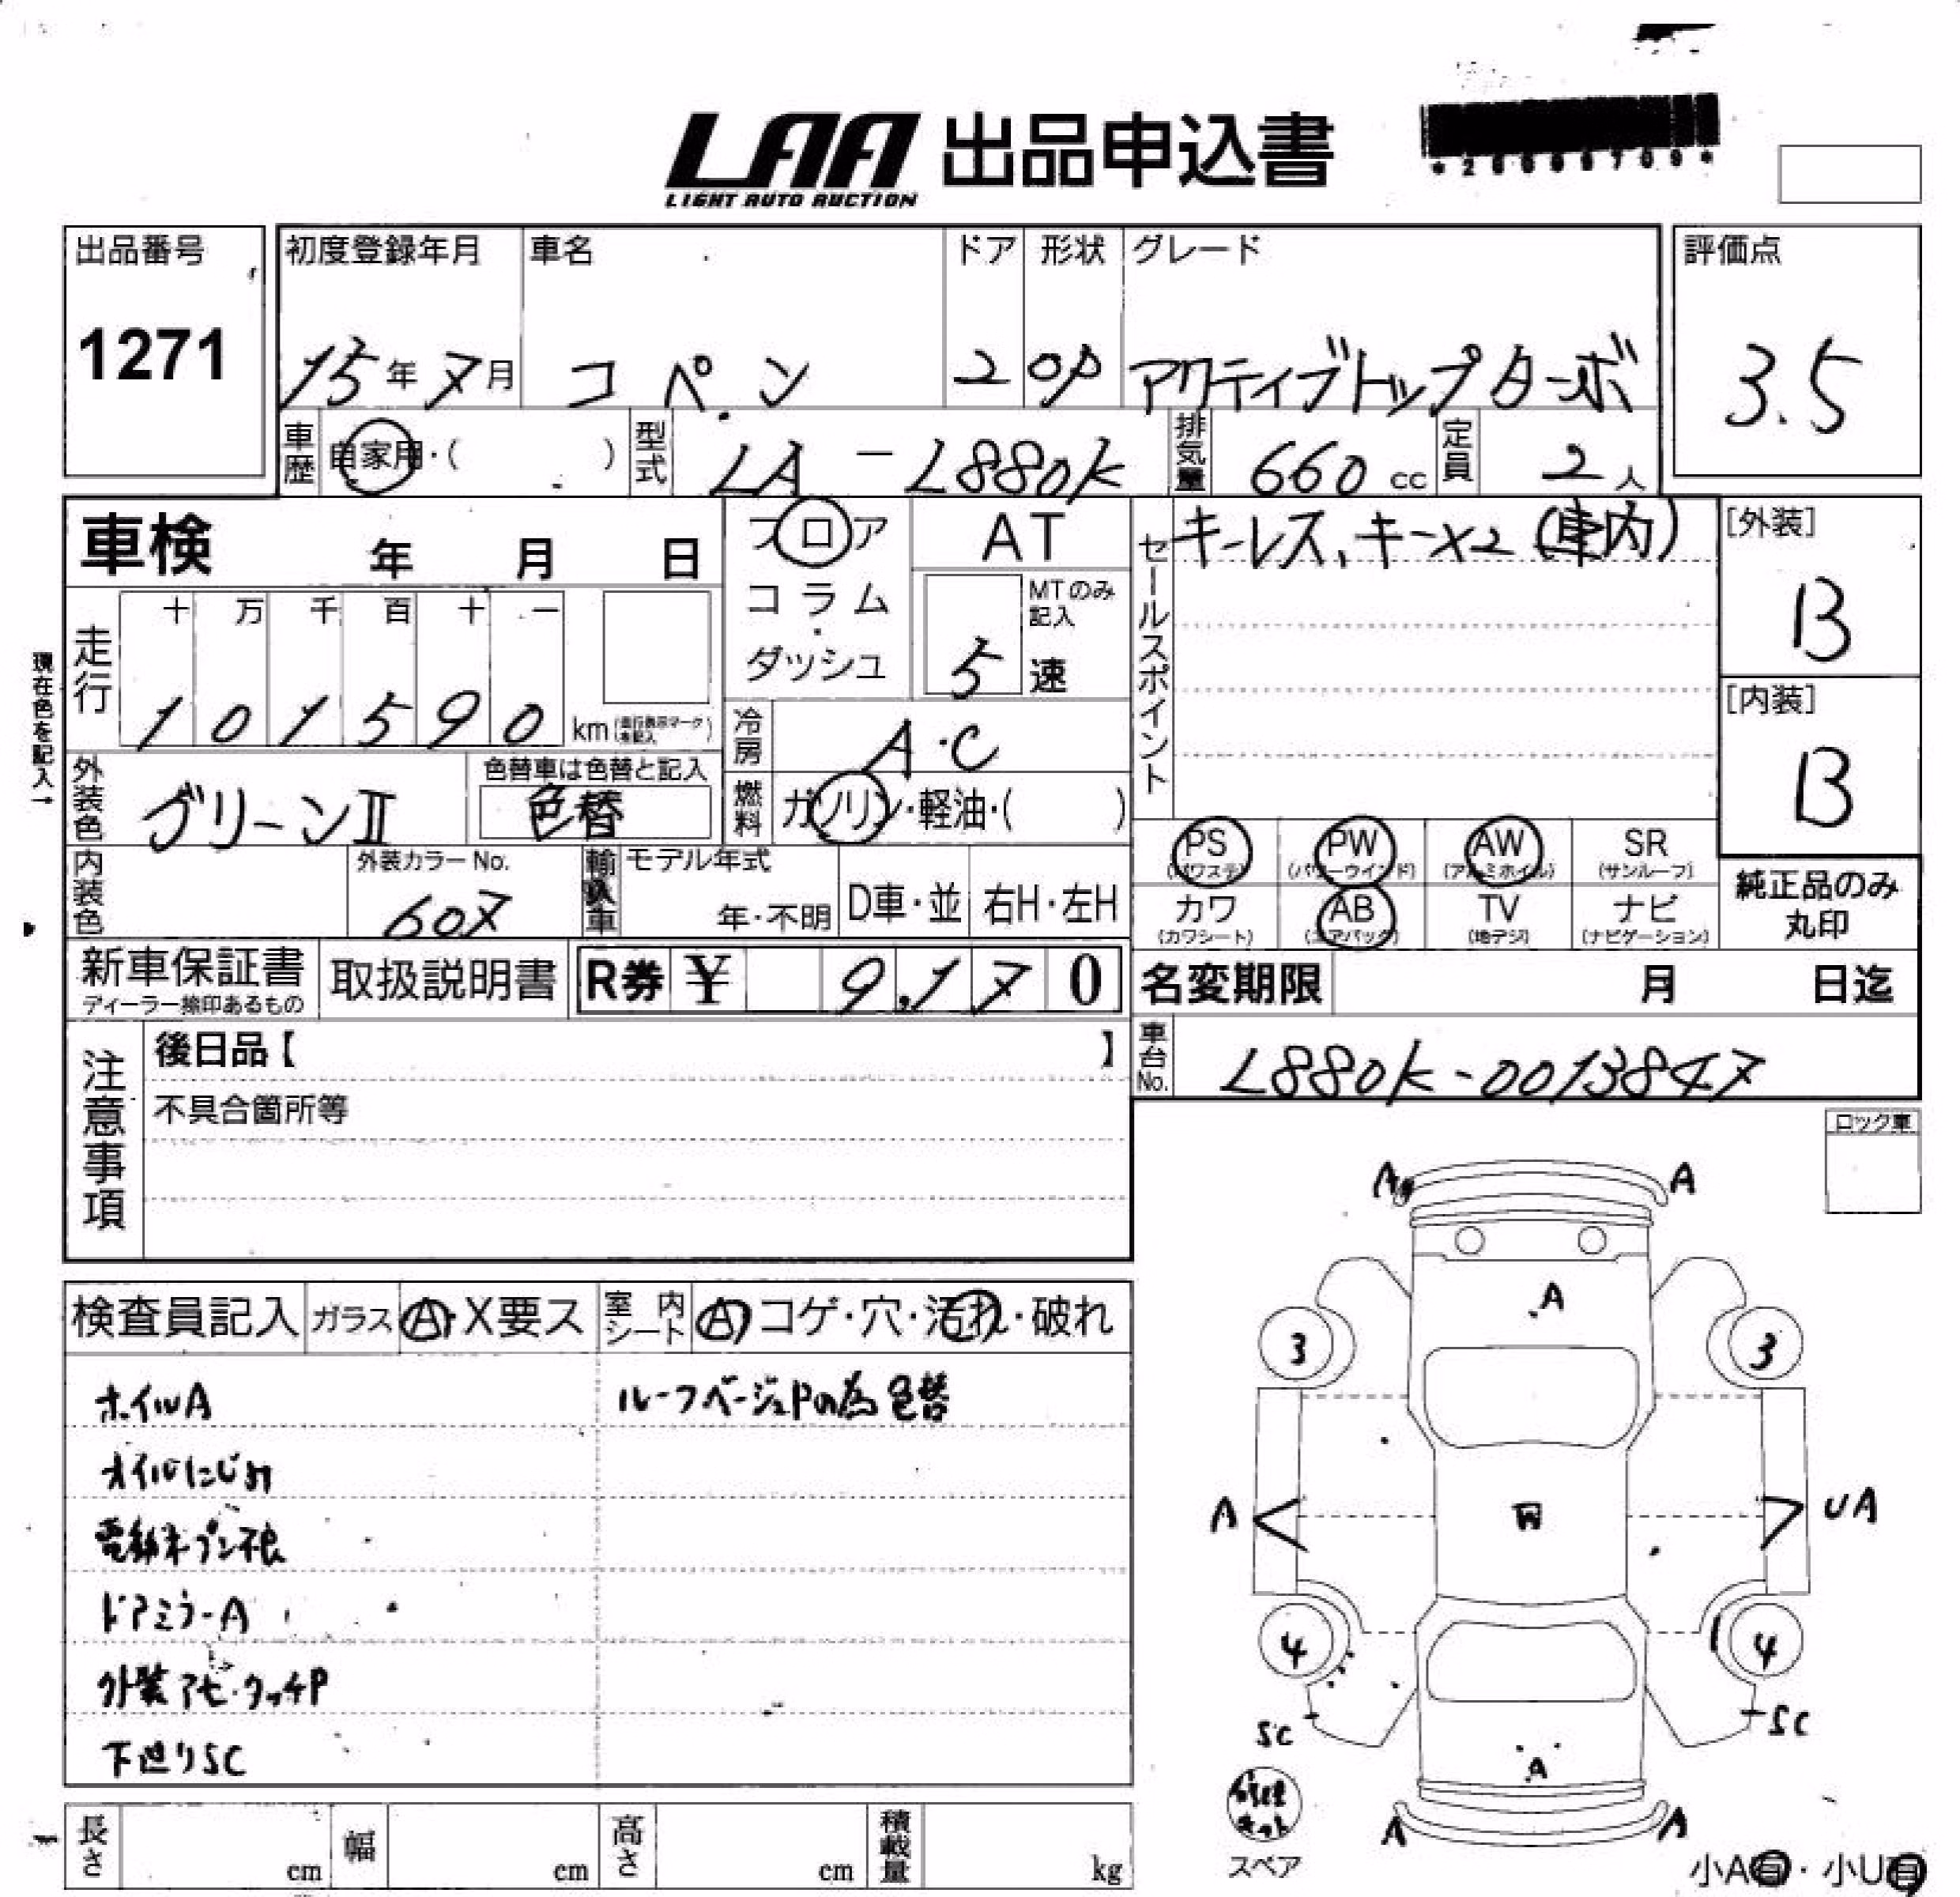 LAA 出品申込書
LIGHT AUTO AUCTION
出品番号
1271
初度登録年月 車名 ドア 形状 グレード
15年 7月 コペン 2 OP アクティブトップターボ
評価点
3.5
車歴 自家用・( ) 型式 LA-L880K 排気量 660 cc 定員 2人
車検 年 月 日
フロア
コラム
・
ダッシュ
AT
MTのみ記入
5 速
セールスポイント
キーレス、キー×2 (車内)
[外装]
B
[内装]
B
現在色を記入→
走行 十 万 千 百 十 一
1 0 1 5 9 0 km
冷房 A・C
燃料 ガソリン・軽油・( )
外装色 グリーンII
色替車は色替と記入
色替
内装色
外装カラーNo.
607
輸入車 モデル年式
年・不明 D車・並 右H・左H
PS (パワステ) PW (パワーウインド) AW (アルミホイル) SR (サンルーフ)
カワ (カワシート) AB (エアバック) TV (地デジ) ナビ (ナビゲーション)
純正品のみ
丸印
新車保証書
ディーラー捺印あるもの
取扱説明書
R券 ¥ 9,170
名変期限 月 日迄
車台No. L880K-0013847
注意事項
後日品【 】
不具合箇所等
ロック車
検査員記入 ガラス A・X要ス 室内シート A コゲ・穴・汚れ・破れ
ホイルA ルーフベージュPの為色替
オイルにじみ
電動オープン不良
ドアミラーA
外装アセ・タッチP
下廻りSC
A A
A
3 3
A UA
4 4
SC SC
A
A A
修理キット
スペア
小A有・小U有
長さ cm 幅 cm 高さ cm 積載量 kg